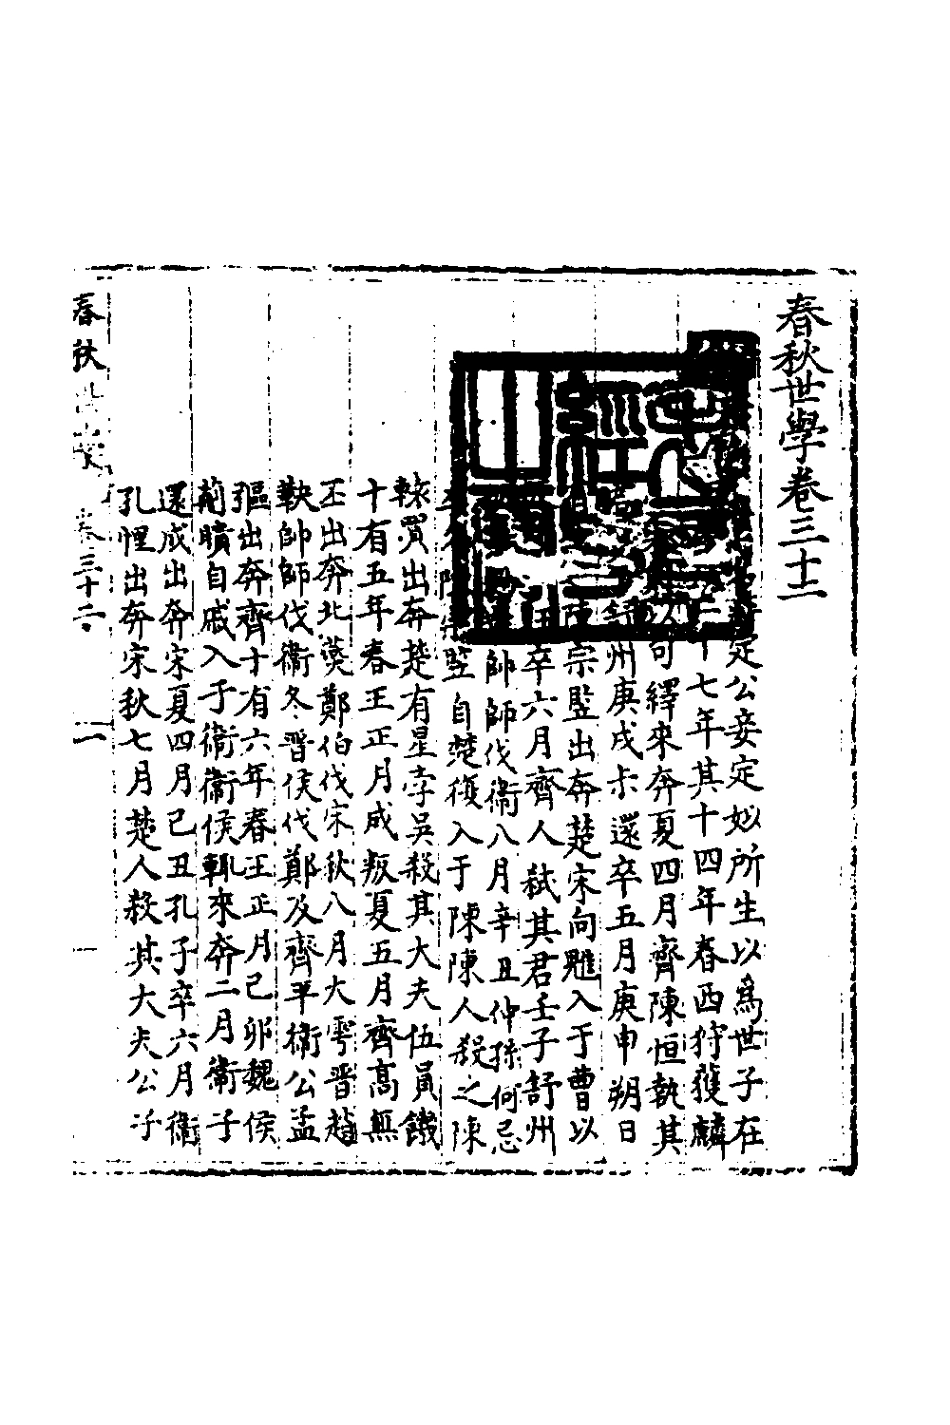 春秋世學卷三十二
定公妾定姒所生以爲世子在
十七年其十四年春西狩獲麟
以句繹來奔夏四月齊陳恒執其
舒州庚戌尗還卒五月庚申朔日
宗豎出奔楚宋向魋入于曹以
卒六月齊人弑其君壬子舒州
帥師伐衞八月辛丑仲孫何忌
豎自楚復入于陳陳人殺之陳
轅買出奔楚有星孛吳殺其大夫伍員饑
十有五年春王正月成叛夏五月齊高無
丕出奔北燕鄭伯伐宋秋八月大雩晋趙
鞅帥師伐衞冬晋侯伐鄭及齊平衞公孟
彄出奔齊十有六年春王正月己卯魏侯
蒯聵自戚入于衞衞侯輒來奔二月衞子
還成出奔宋夏四月己丑孔子卒六月衞
孔悝出奔宋秋七月楚人殺其大夫公子
春秋世學 卷三十二 一